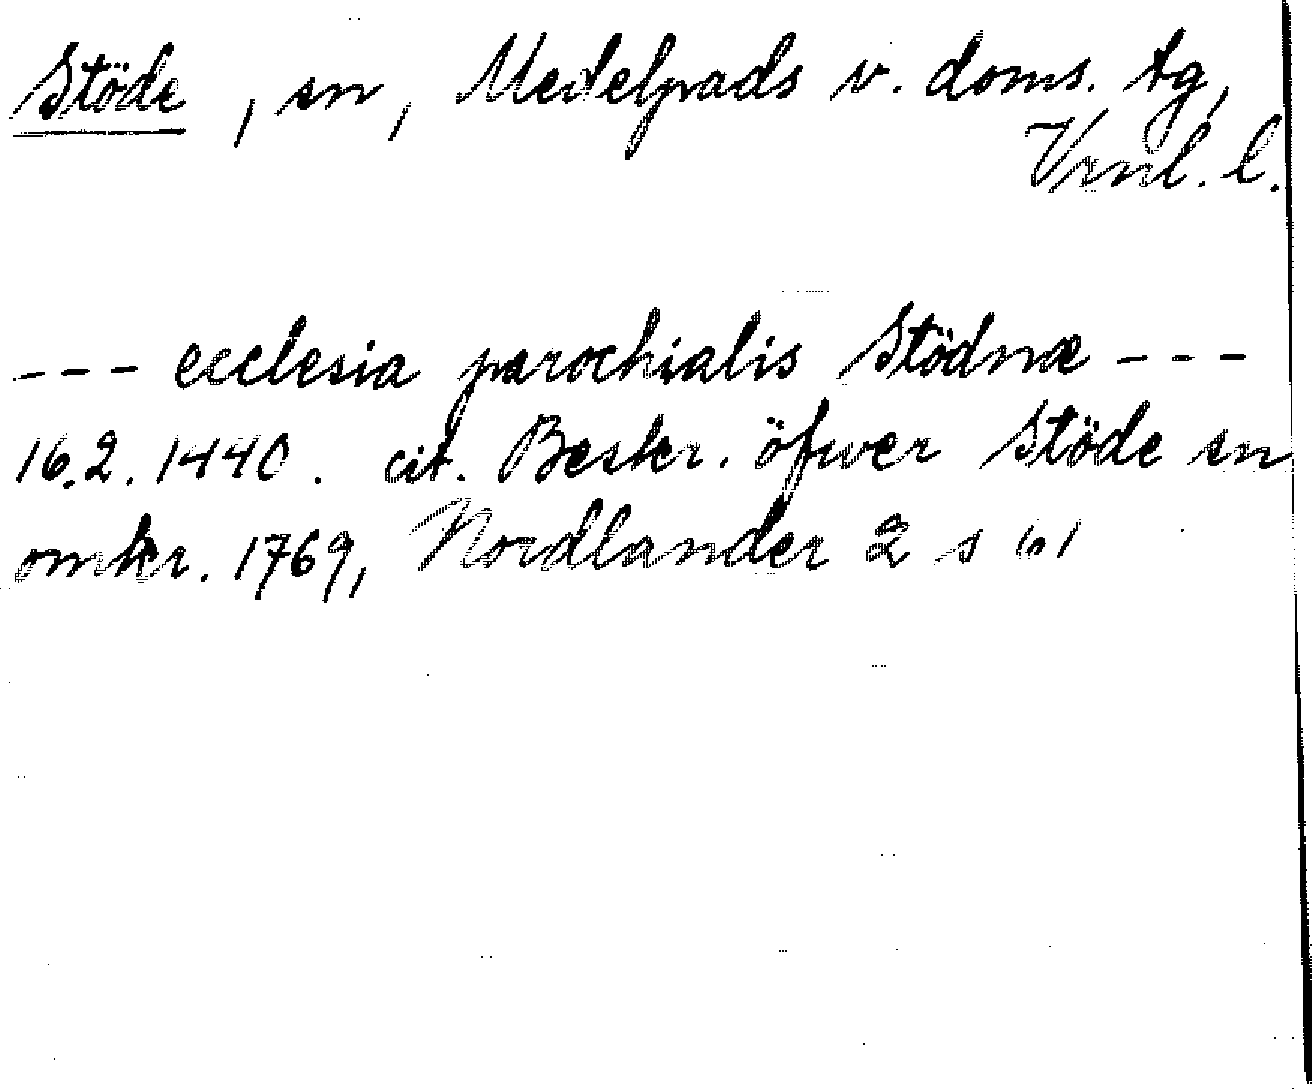 Stöde, sn, Medelpads v. doms. tg,
Vrnl. l.
--- ecclesia parochialis Stödnæ ---
16.2.1440. cit. Beskr. öfwer Stöde sn
omkr. 1769, Nordlander 2 s 61